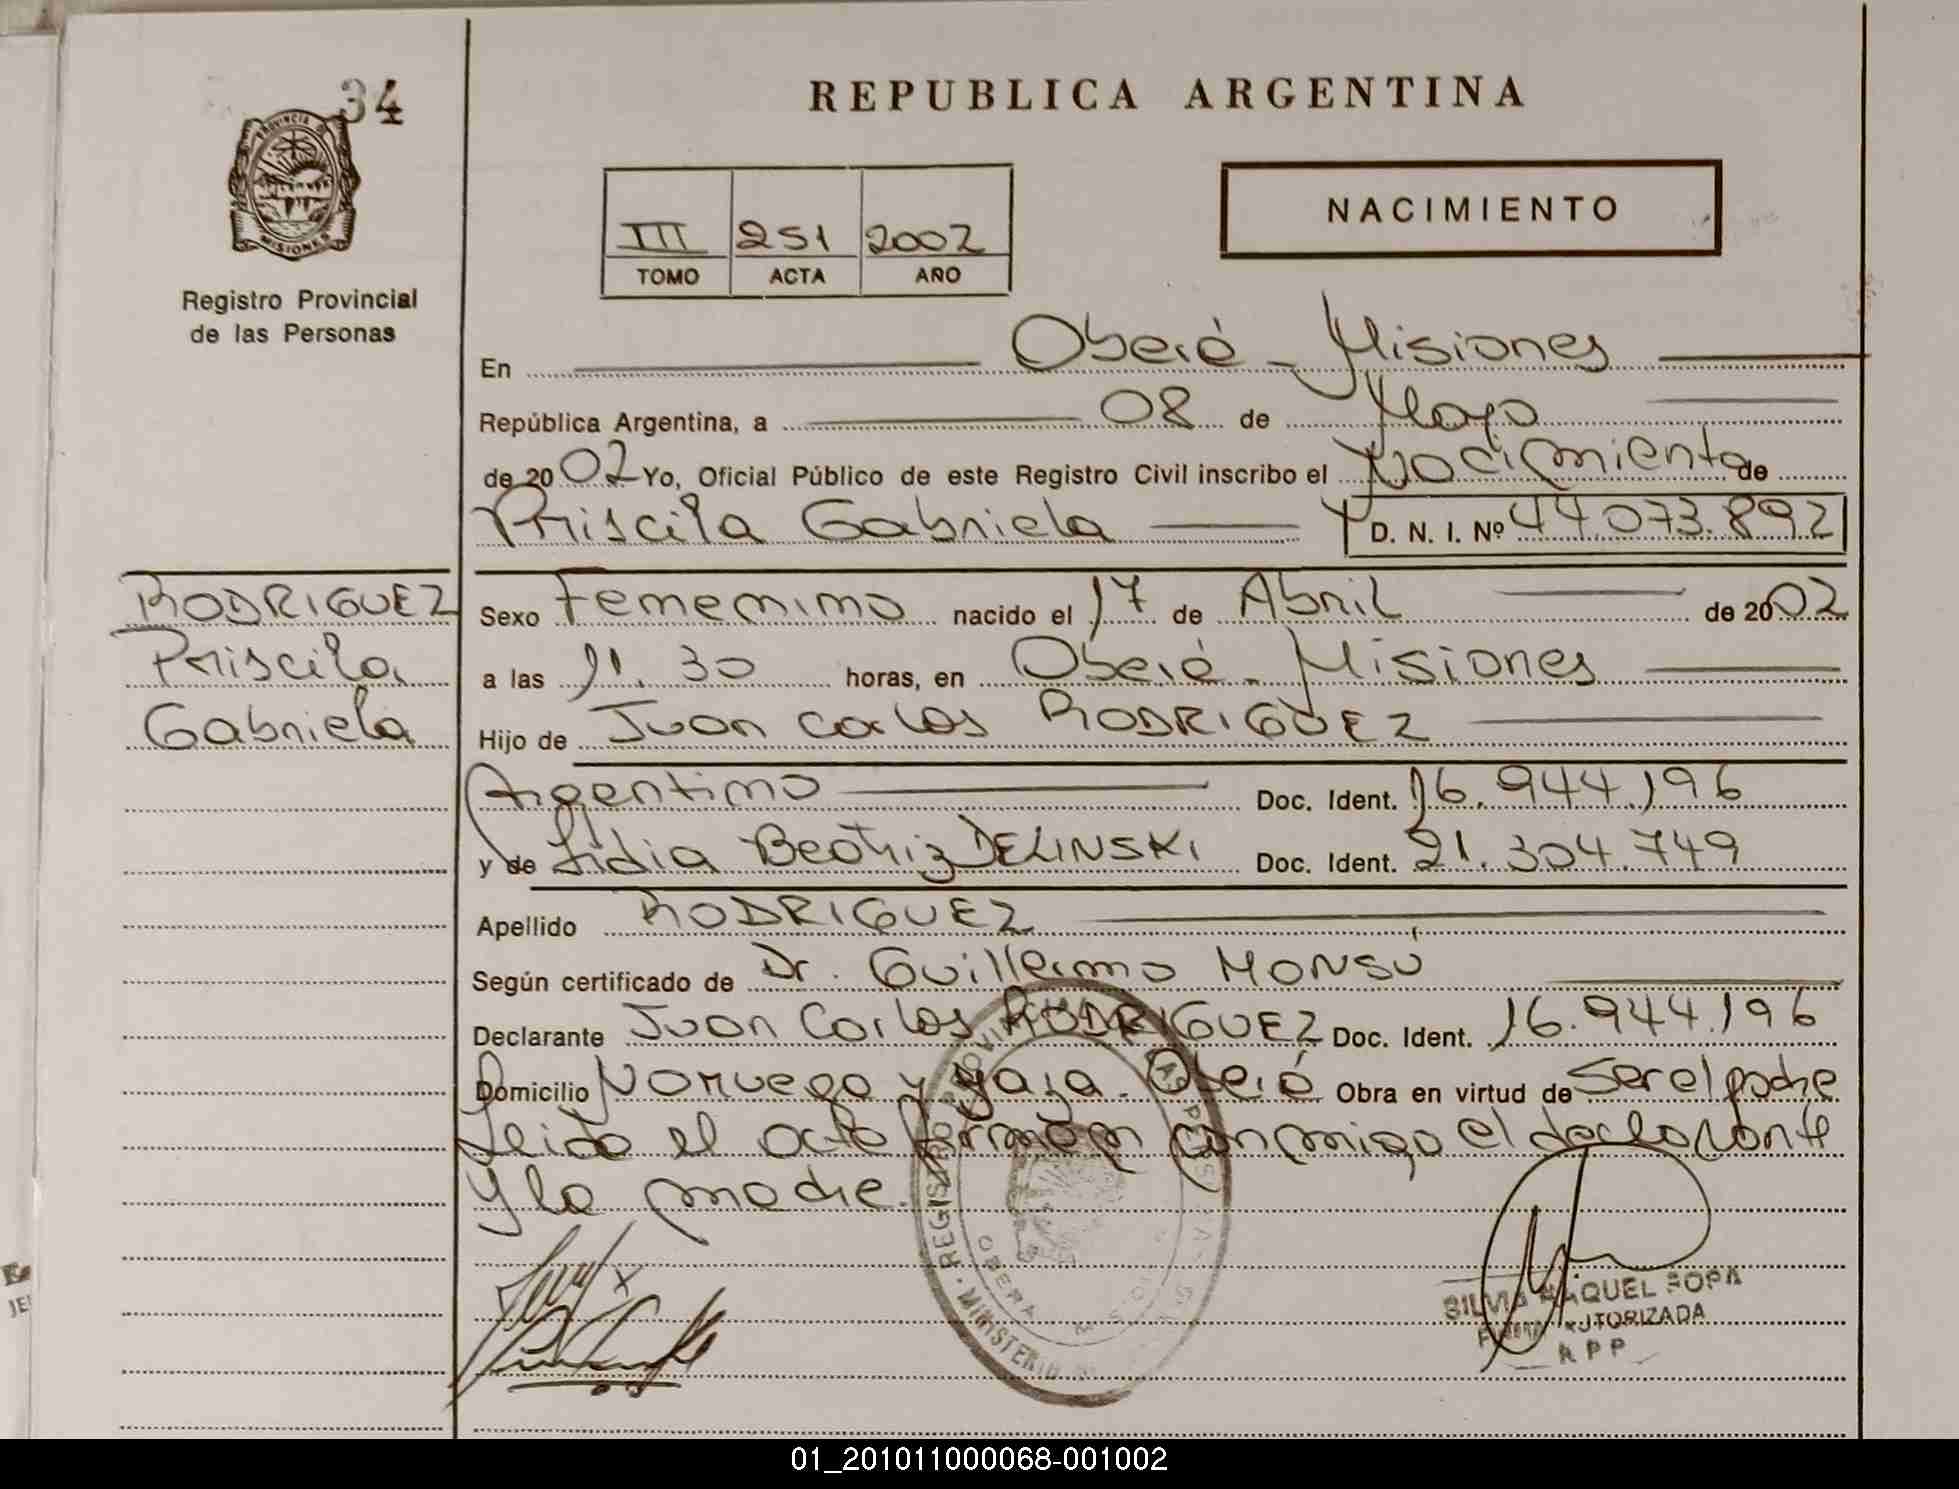 34
PROVINCIA DE
MISIONES
Registro Provincial
de las Personas
REPUBLICA ARGENTINA
III 251 2002
TOMO ACTA AÑO
NACIMIENTO
En Oberá - Misiones
República Argentina, a 08 de Mayo
de 2002 Yo, Oficial Público de este Registro Civil inscribo el Nacimiento de
Priscila Gabriela D. N. I. Nº 44.073.892
RODRIGUEZ
Priscila
Gabriela
Sexo Femenino nacido el 17 de Abril de 2002
a las 11.30 horas, en Oberá - Misiones
Hijo de Juan Carlos RODRIGUEZ
Argentino Doc. Ident. 16.944.196
y de Lidia Beatriz DELINSKI Doc. Ident. 21.304.749
Apellido RODRIGUEZ
Según certificado de Dr. Guillermo MONSÚ
Declarante Juan Carlos RODRIGUEZ Doc. Ident. 16.944.196
Domicilio Noruega y Oberá Obra en virtud de ser el padre
Leido el acta firman conmigo el declarante
y la madre.
REGISTRO PROVINCIAL DE LAS PERSONAS
MINISTERIO
OBERA MISIONES
SILVIA RAQUEL SOPA
AUTORIZADA
RPP
01_201011000068-001002